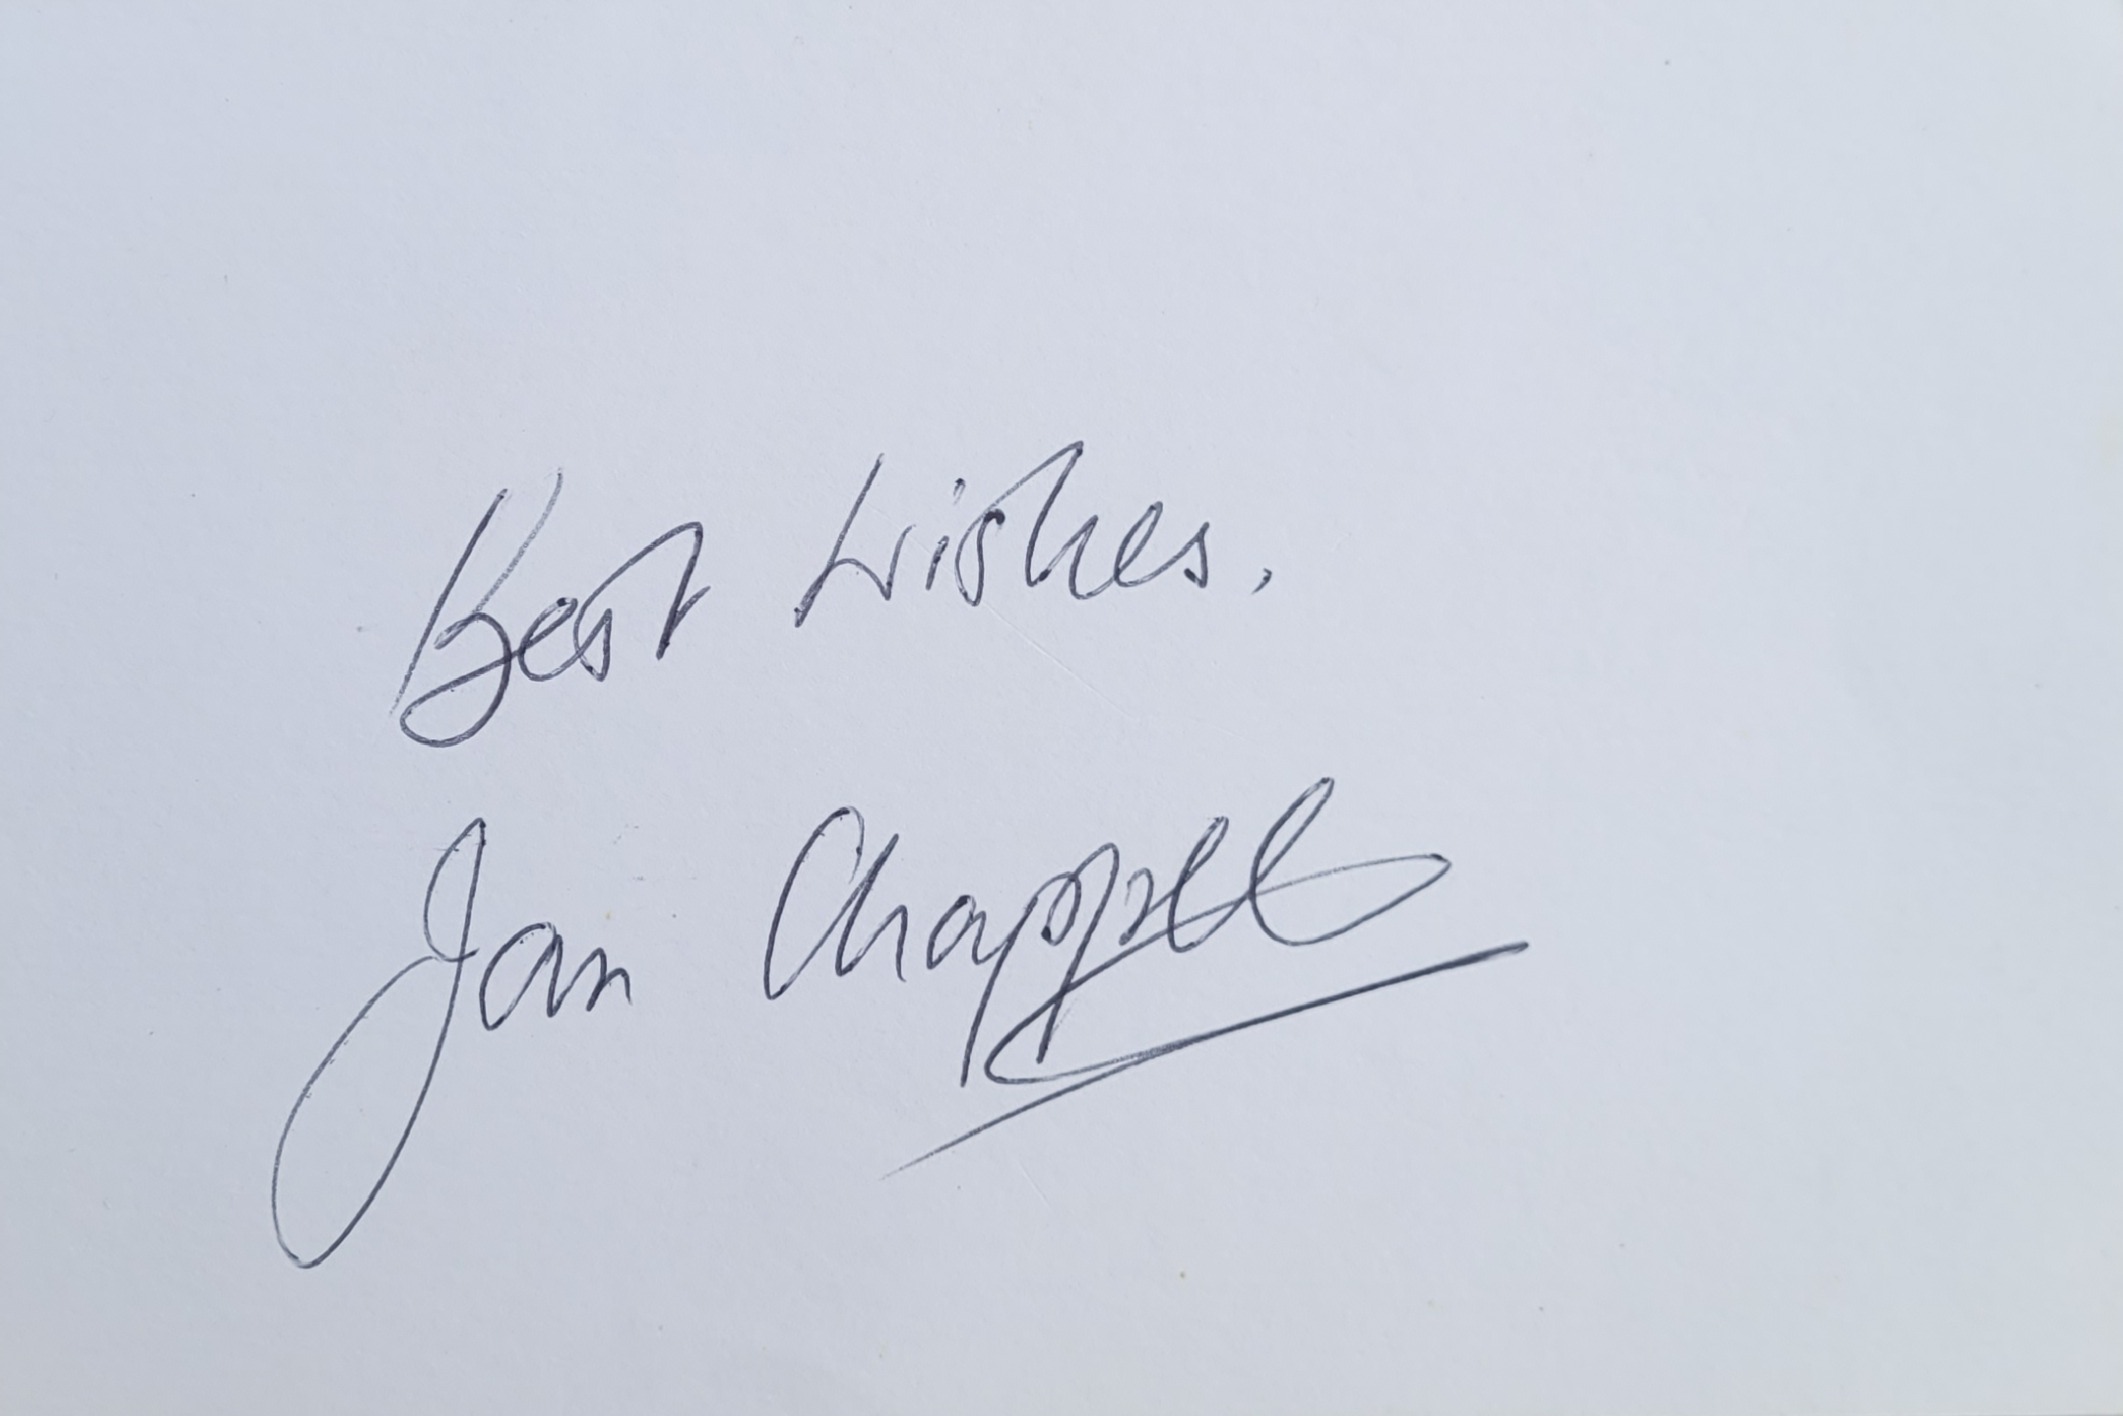 Best Wishes.
Jan Chappell